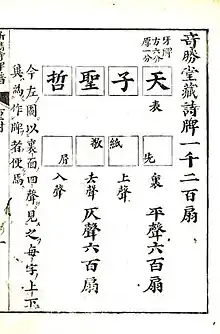 奇勝堂藏詩牌一千二百扇
牙牌
方六分
厚一分
天
表
先
裏
平聲六百扇
子
紙
上聲
聖
敬
去聲
仄聲六百扇
哲
屑
入聲
今左圖以裏面四聲見之每字上下
作牌
便焉